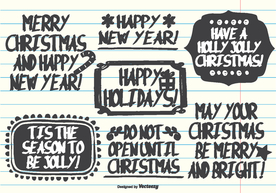 MERRY
CHRISTMAS
AND HAPPY
NEW YEAR!
HAPPY
NEW YEAR!
HAVE A
HOLLY JOLLY
CHRISTMAS!
HAPPY
HOLIDAYS!
'TIS THE
SEASON TO
BE JOLLY!
DO NOT
OPEN UNTIL
CHRISTMAS
MAY YOUR
CHRISTMAS
BE MERRY
AND BRIGHT!
Designed by Vecteezy